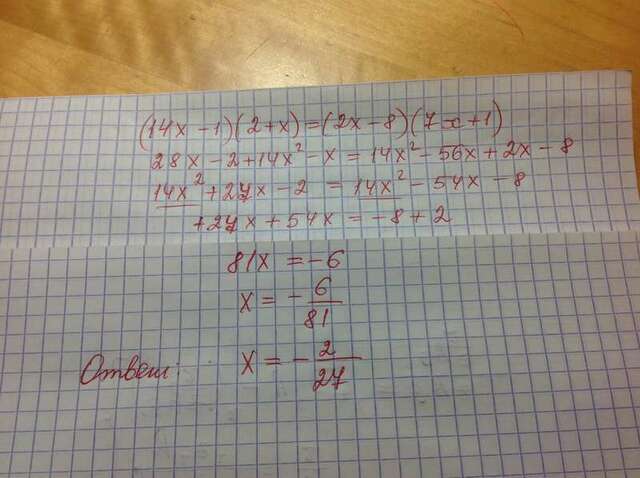 (14x - 1)(2 + x) = (2x - 8)(7x + 1)
28x - 2 + 14x² - x = 14x² - 56x + 2x - 8
14x² + 27x - 2 = 14x² - 54x - 8
+27x + 54x = -8 + 2
81x = -6
x = - 6/81
Ответ: x = - 2/27